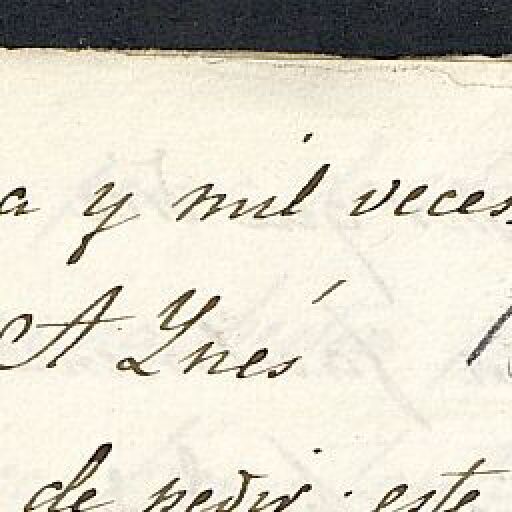 a y mil veces
A Ynés
de pedir este